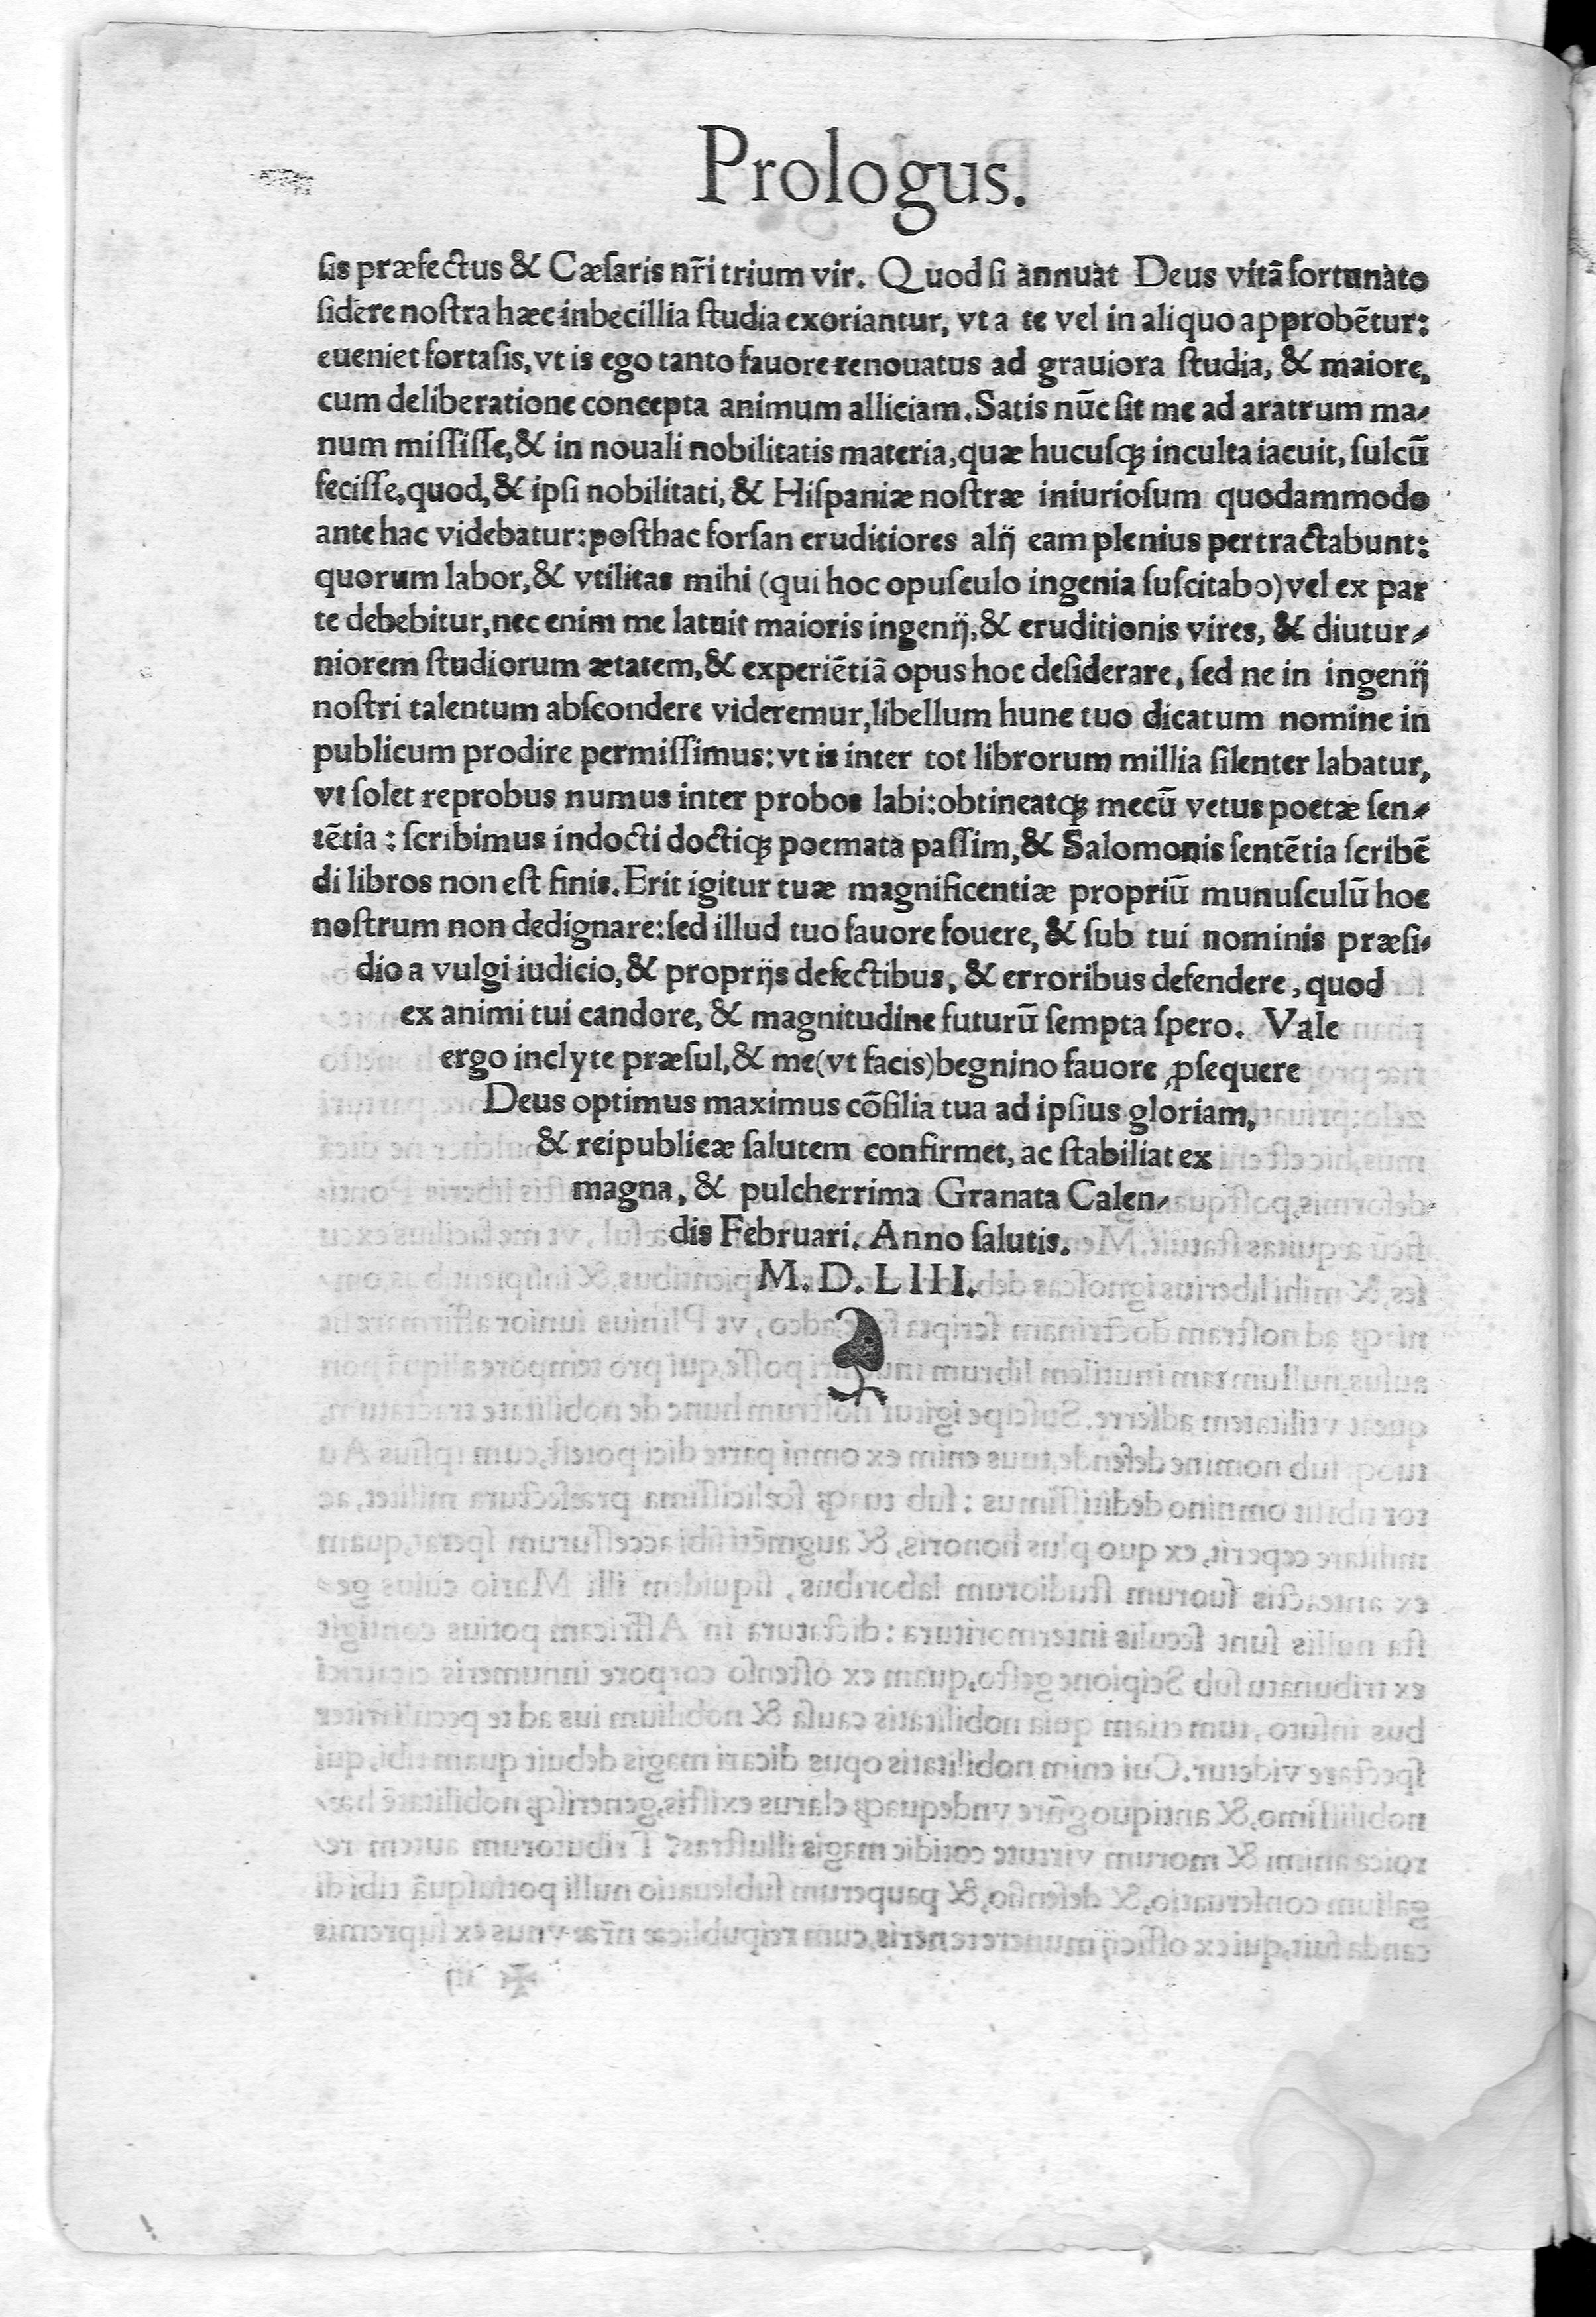 Prologus.
sis præfectus & Cæsaris nr̃i trium vir. Quod si annuat Deus vitā fortunato
sidere nostra hæc inbecillia studia exoriantur, vt a te vel in aliquo approbētur:
eueniet fortasis, vt is ego tanto fauore renouatus ad grauiora studia, & maiore,
cum deliberatione concepta animum alliciam. Satis nūc sit me ad aratrum ma-
num mississe, & in nouali nobilitatis materia, quæ hucusqꝫ inculta iacuit, sulcū
fecisse, quod, & ipsi nobilitati, & Hispaniæ nostræ iniuriosum quodammodo
ante hac videbatur: posthac forsan eruditiores alij eam plenius pertractabunt:
quorum labor, & vtilitas mihi (qui hoc opusculo ingenia suscitabo) vel ex par
te debebitur, nec enim me latuit maioris ingenij, & eruditionis vires, & diutur-
niorem studiorum ætatem, & experiētiā opus hoc desiderare, sed ne in ingenij
nostri talentum abscondere videremur, libellum hunc tuo dicatum nomine in
publicum prodire permissimus: vt is inter tot librorum millia silenter labatur,
vt solet reprobus numus inter probos labi: obtineatqꝫ mecū vetus poetæ sen-
tētia: scribimus indocti doctiqꝫ poemata passim, & Salomonis sentētia scribē
di libros non est finis. Erit igitur tuæ magnificentiæ propriū munusculū hoc
nostrum non dedignare: sed illud tuo fauore fouere, & sub tui nominis præsi-
dio a vulgi iudicio, & proprijs defectibus, & erroribus defendere, quod
ex animi tui candore, & magnitudine futurū sempta spero. Vale
ergo inclyte præsul, & me (vt facis) begnino fauore ꝓsequere
Deus optimus maximus cōsilia tua ad ipsius gloriam,
& reipublicæ salutem confirmet, ac stabiliat ex
magna, & pulcherrima Granata Calen-
dis Februari. Anno salutis.
M. D. LIII.